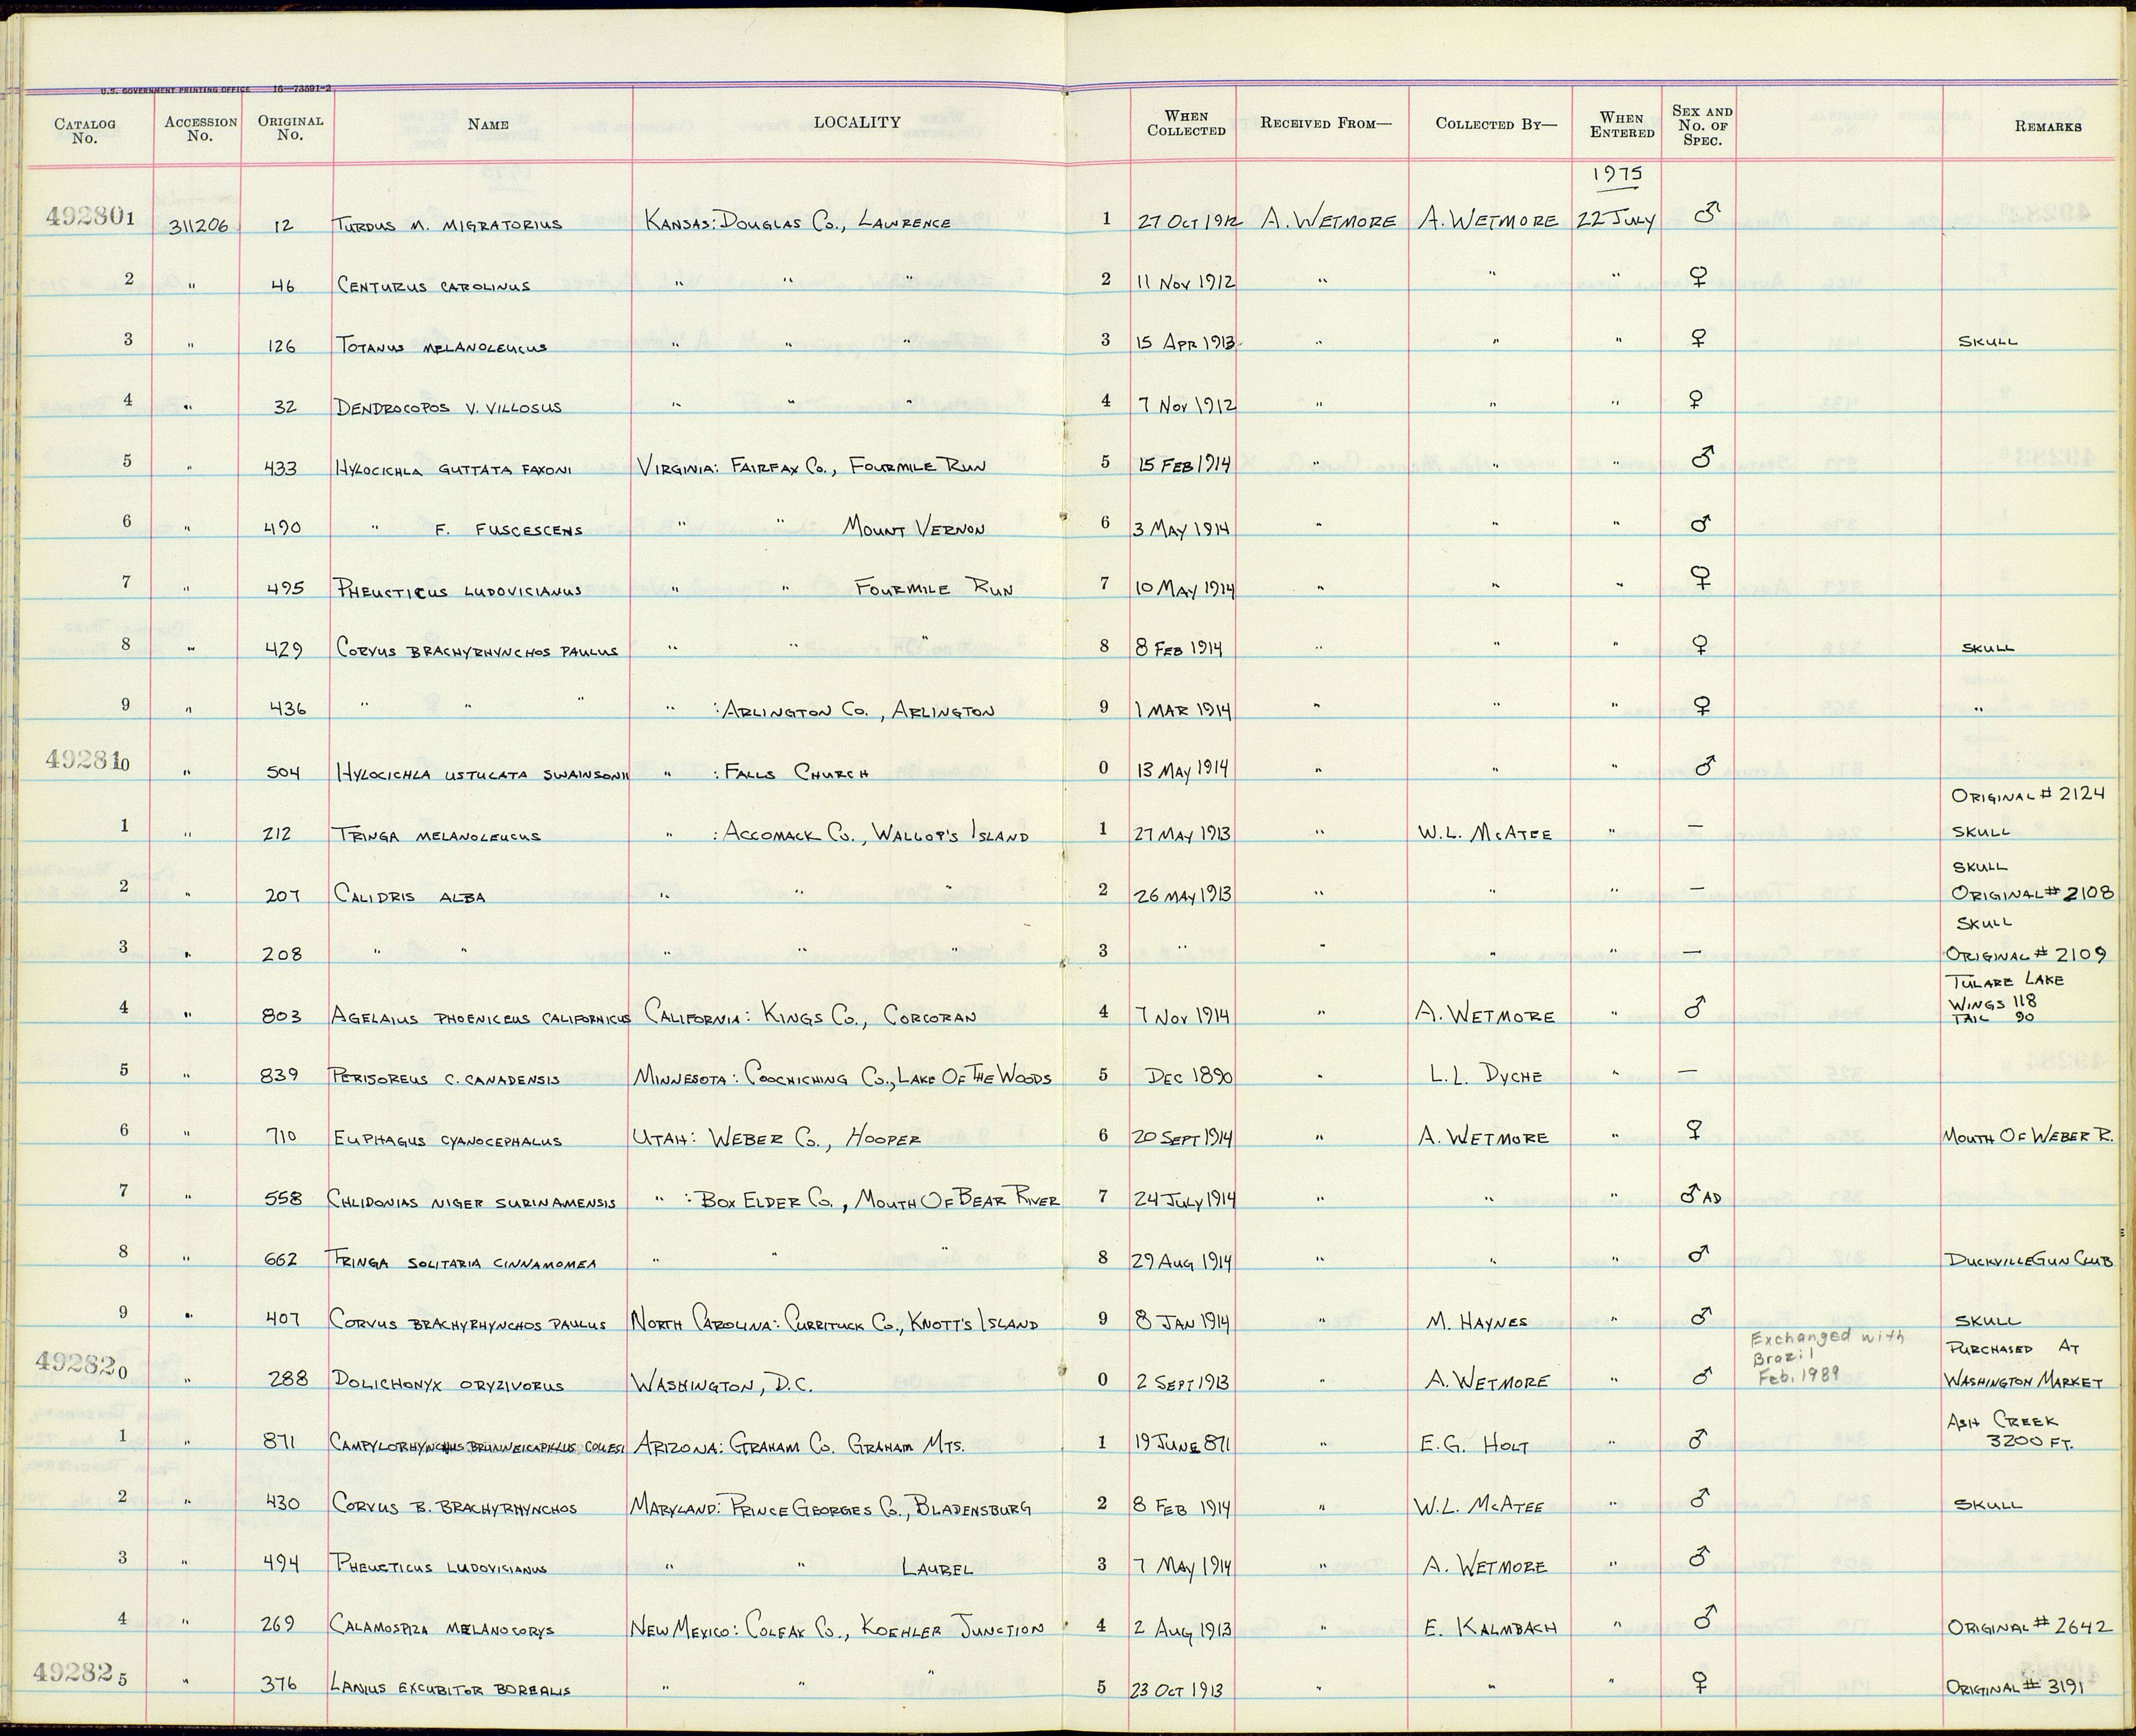 U.S. GOVERNMENT PRINTING OFFICE 16—73591-2
CATALOG No. ACCESSION No. ORIGINAL No. NAME LOCALITY WHEN COLLECTED RECEIVED FROM— COLLECTED BY— WHEN ENTERED SEX AND No. OF SPEC. REMARKS
1975
492801 311206 12 TURDUS M. MIGRATORIUS KANSAS: DOUGLAS CO., LAWRENCE 1 27 OCT 1912 A. WETMORE A. WETMORE 22 JULY ♂
2 " 46 CENTURUS CAROLINUS " " " 2 11 NOV 1912 " " " ♀
3 " 126 TOTANUS MELANOLEUCUS " " " 3 15 APR 1913 " " " ♀ SKULL
4 " 32 DENDROCOPOS V. VILLOSUS " " " 4 7 NOV 1912 " " " ♀
5 " 433 HYLOCICHLA GUTTATA FAXONI VIRGINIA: FAIRFAX CO., FOURMILE RUN 5 15 FEB 1914 " " " ♂
6 " 490 " F. FUSCESCENS " " MOUNT VERNON 6 3 MAY 1914 " " " ♂
7 " 495 PHEUCTICUS LUDOVICIANUS " " FOURMILE RUN 7 10 MAY 1914 " " " ♀
8 " 429 CORVUS BRACHYRHYNCHOS PAULUS " " " 8 8 FEB 1914 " " " ♀ SKULL
9 " 436 " " " " : ARLINGTON CO., ARLINGTON 9 1 MAR 1914 " " " ♀ "
492810 " 504 HYLOCICHLA USTULATA SWAINSONII " : FALLS CHURCH 0 13 MAY 1914 " " " ♂
ORIGINAL # 2124
1 " 212 TRINGA MELANOLEUCUS " : ACCOMACK CO., WALLOP'S ISLAND 1 27 MAY 1913 " W.L. McATEE " — SKULL
SKULL
2 " 207 CALIDRIS ALBA " " " 2 26 MAY 1913 " " " — ORIGINAL # 2108
SKULL
3 " 208 " " " " " 3 " " " " — ORIGINAL # 2109
TULARE LAKE
WINGS 118
4 " 803 AGELAIUS PHOENICEUS CALIFORNICUS CALIFORNIA: KINGS CO., CORCORAN 4 7 NOV 1914 " A. WETMORE " ♂ TAIL 90
5 " 839 PERISOREUS C. CANADENSIS MINNESOTA: COOCHICHING CO., LAKE OF THE WOODS 5 DEC 1890 " L.L. DYCHE " —
6 " 710 EUPHAGUS CYANOCEPHALUS UTAH: WEBER CO., HOOPER 6 20 SEPT 1914 " A. WETMORE " ♀ MOUTH OF WEBER R.
7 " 558 CHLIDONIAS NIGER SURINAMENSIS " : BOX ELDER CO., MOUTH OF BEAR RIVER 7 24 JULY 1914 " " " ♂ AD
8 " 662 TRINGA SOLITARIA CINNAMOMEA " " " 8 29 AUG 1914 " " " ♂ DUCKVILLE GUN CLUB
9 " 407 CORVUS BRACHYRHYNCHOS PAULUS NORTH CAROLINA: CURRITUCK CO., KNOTT'S ISLAND 9 8 JAN 1914 " M. HAYNES " ♂ SKULL
Exchanged with Brazil Feb. 1989 PURCHASED AT
492820 " 288 DOLICHONYX ORYZIVORUS WASHINGTON, D.C. 0 2 SEPT 1913 " A. WETMORE " ♂ WASHINGTON MARKET
ASH CREEK
1 " 871 CAMPYLORHYNCHUS BRUNNEICAPILLUS COUESI ARIZONA: GRAHAM CO. GRAHAM MTS. 1 19 JUNE 871 " E.G. HOLT " ♂ 3200 FT.
2 " 430 CORVUS B. BRACHYRHYNCHOS MARYLAND: PRINCE GEORGES CO., BLADENSBURG 2 8 FEB 1914 " W.L. McATEE " ♂ SKULL
3 " 494 PHEUCTICUS LUDOVICIANUS " " LAUREL 3 7 MAY 1914 " A. WETMORE " ♂
4 " 269 CALAMOSPIZA MELANOCORYS NEW MEXICO: COLFAX CO., KOEHLER JUNCTION 4 2 AUG 1913 " E. KALMBACH " ♂ ORIGINAL # 2642
492825 " 376 LANIUS EXCUBITOR BOREALIS " " " 5 23 OCT 1913 " " " ♀ ORIGINAL # 3191